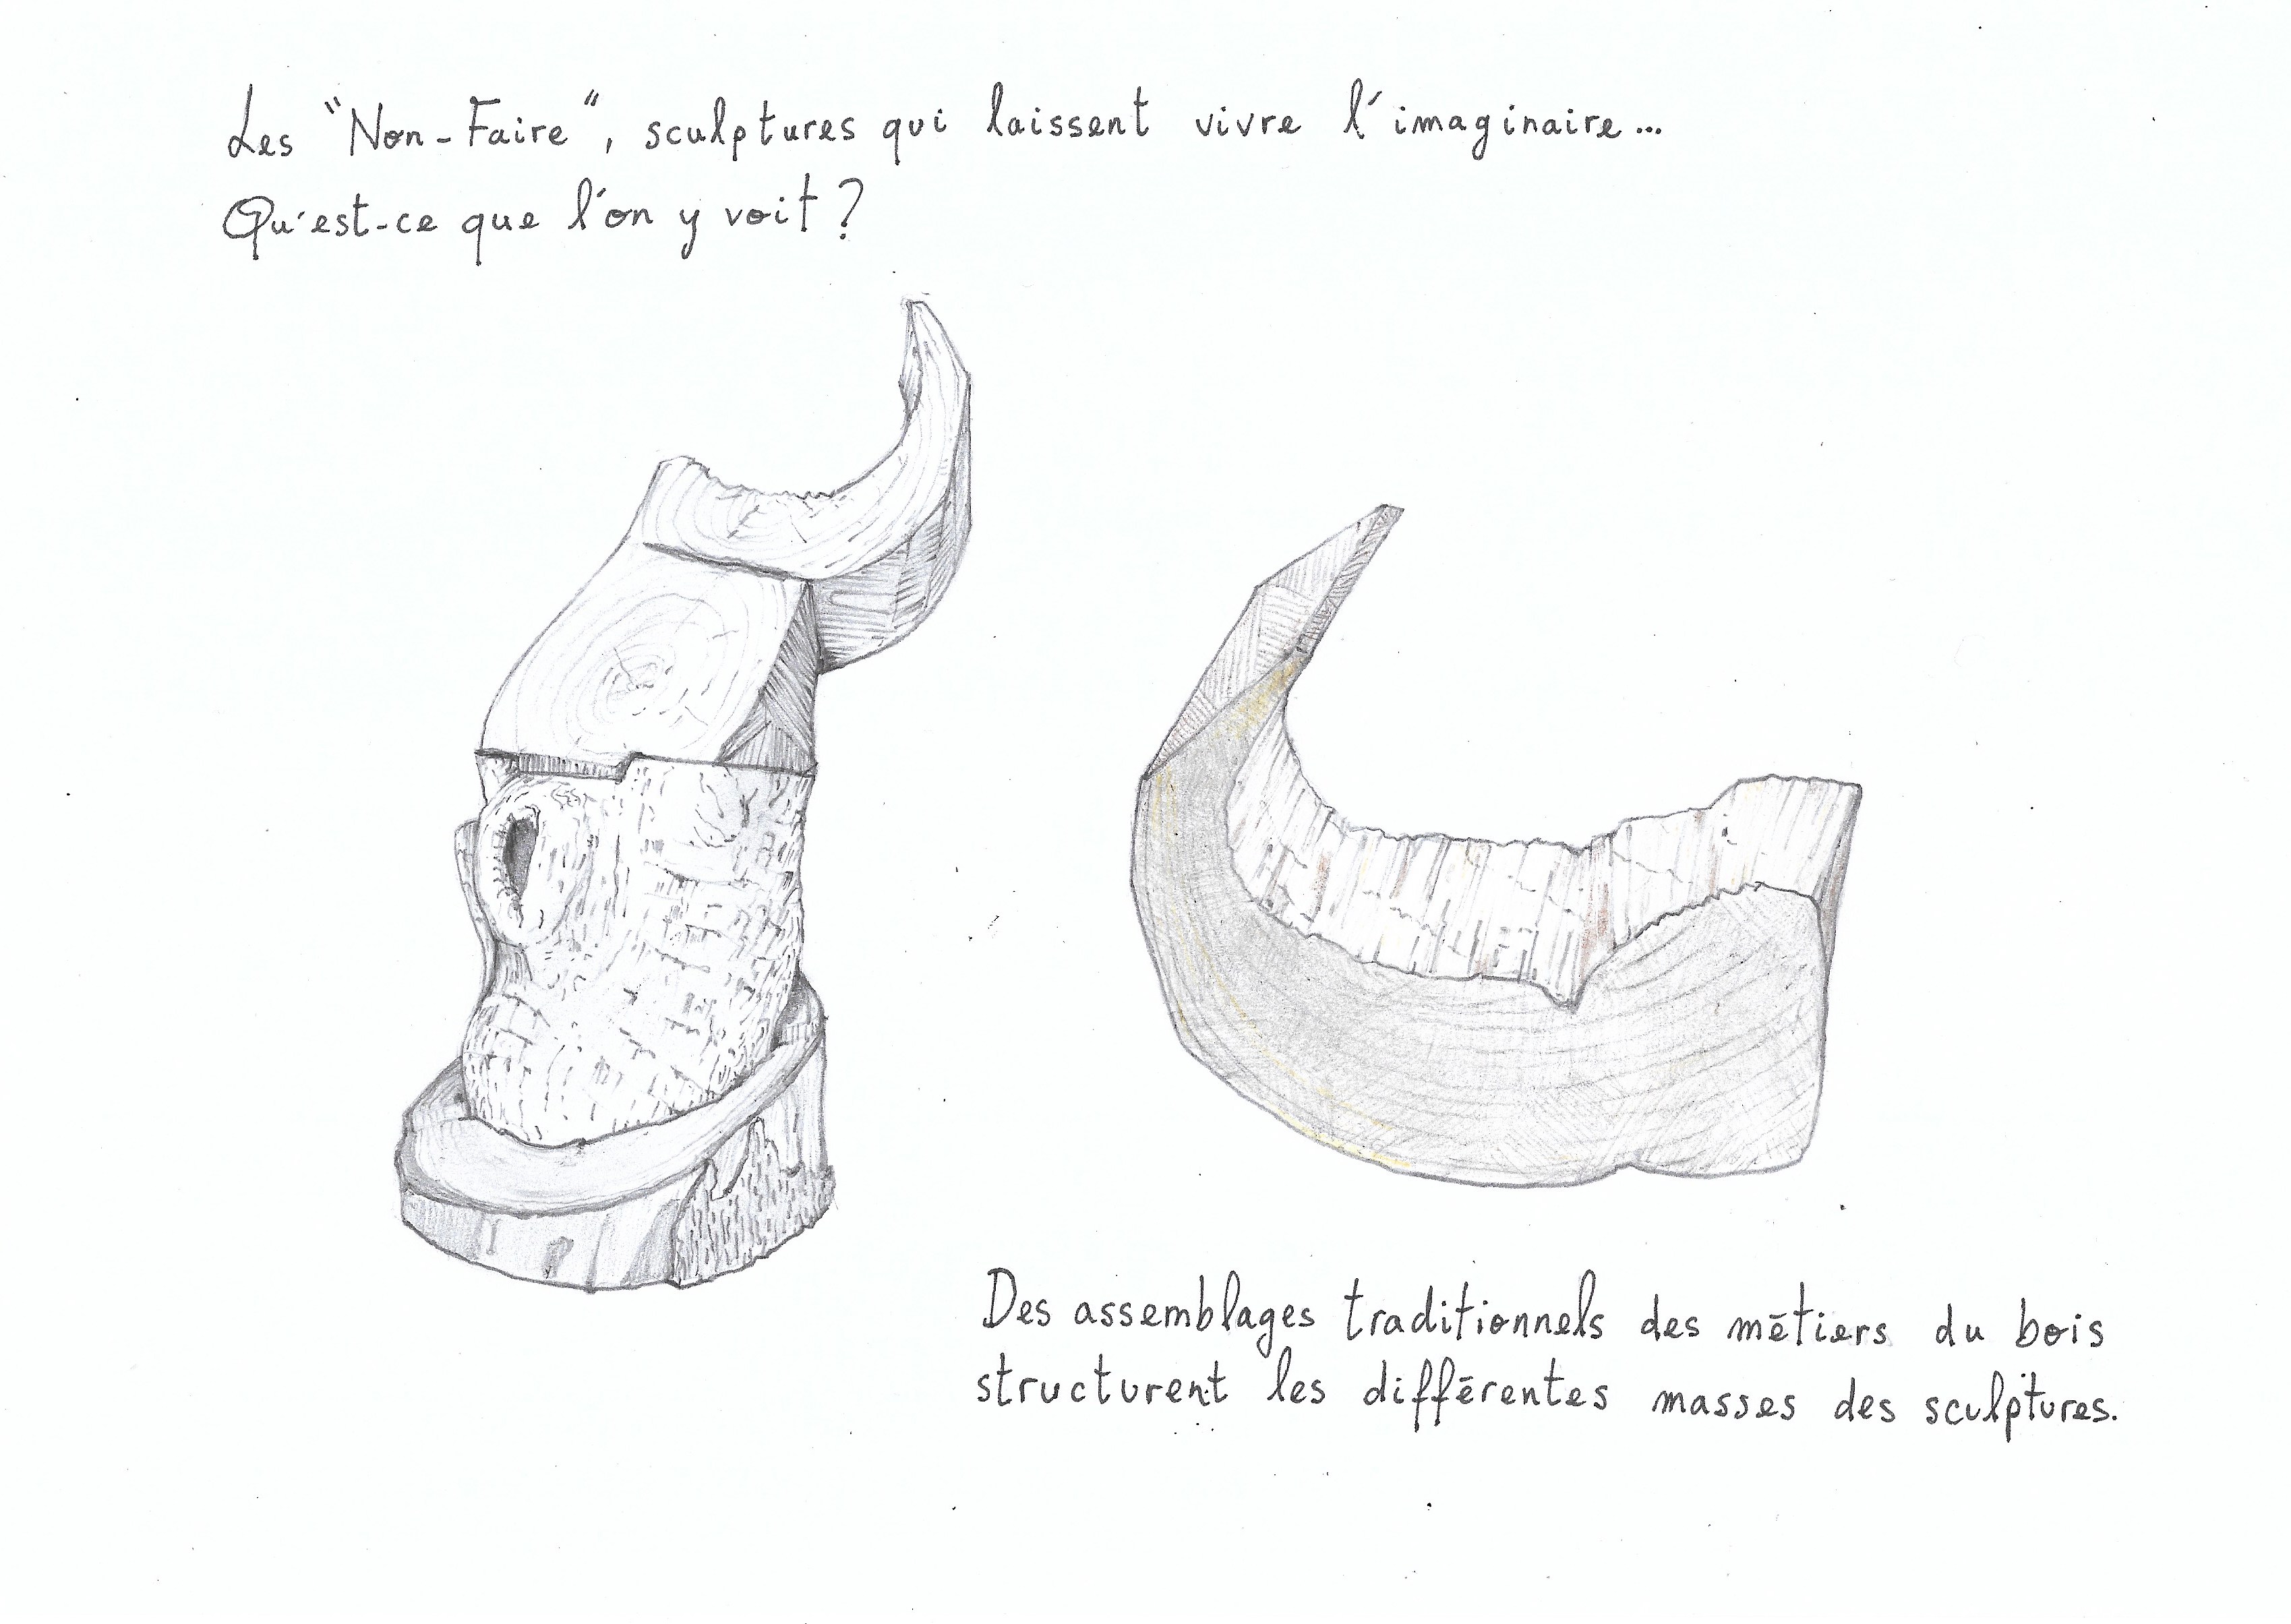 Les "Non-Faire", sculptures qui laissent vivre l'imaginaire...
Qu'est-ce que l'on y voit ?
Des assemblages traditionnels des métiers du bois
structurent les différentes masses des sculptures.